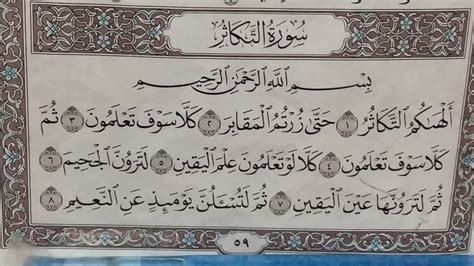 سُورَةُ التَّكَاثُرِ
بِسْمِ ٱللَّهِ ٱلرَّحْمَٰنِ ٱلرَّحِيمِ
أَلْهَىٰكُمُ ٱلتَّكَاثُرُ ١ حَتَّىٰ زُرْتُمُ ٱلْمَقَابِرَ ٢ كَلَّا سَوْفَ تَعْلَمُونَ ٣ ثُمَّ
كَلَّا سَوْفَ تَعْلَمُونَ ٤ كَلَّا لَوْ تَعْلَمُونَ عِلْمَ ٱلْيَقِينِ ٥ لَتَرَوُنَّ ٱلْجَحِيمَ ٦
ثُمَّ لَتَرَوُنَّهَا عَيْنَ ٱلْيَقِينِ ٧ ثُمَّ لَتُسْـَٔلُنَّ يَوْمَئِذٍ عَنِ ٱلنَّعِيمِ ٨
٥٩